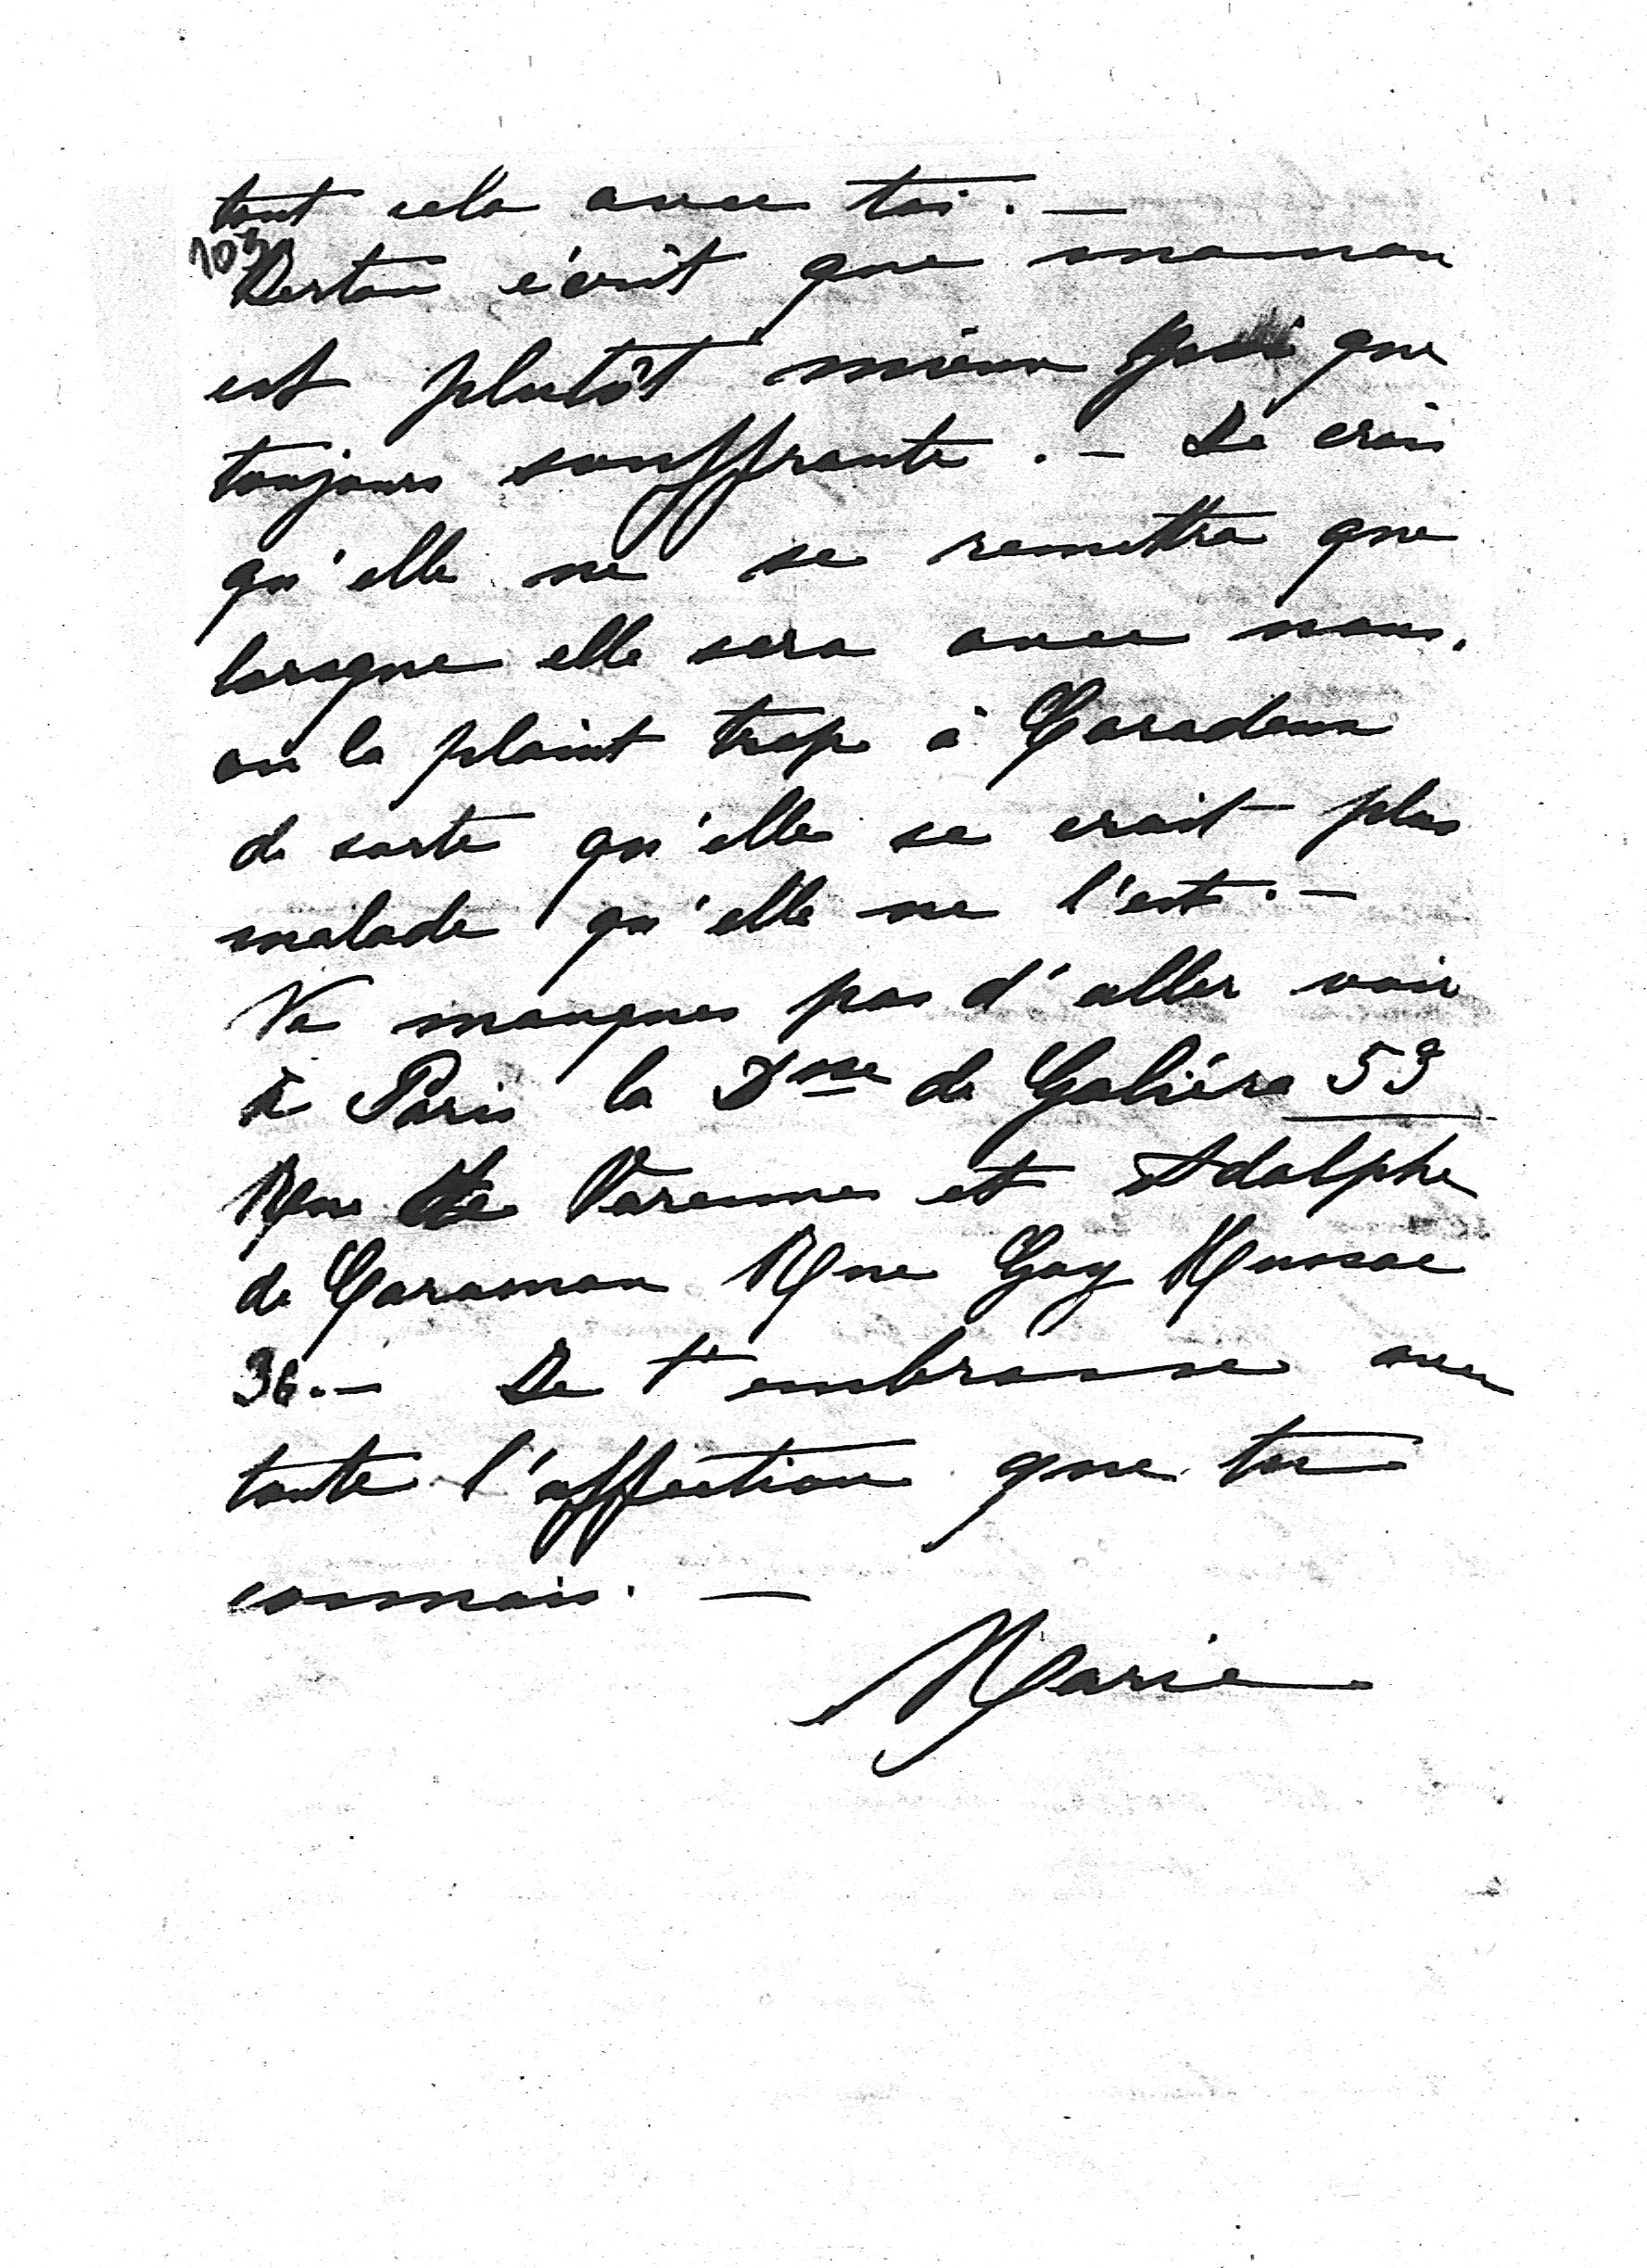 tout cela avec toi. —
103
écrit que maman
est plutôt mieux quoi que
toujours souffrante. — Je crois
qu'elle ne se remettra que
lorsque elle sera avec nous.
on la plaint trop à Caradeux
de sorte qu'elle se croit plus
malade qu'elle ne l'est. —
Ne manques pas d'aller voir
à Paris la Dsse de Galiéra 59
Rue de Varennes et Adolphe
de Caraman Rue Gay Lussac
36. — Je t'embrasse avec
toute l'affection que tu
connais. —
Marie